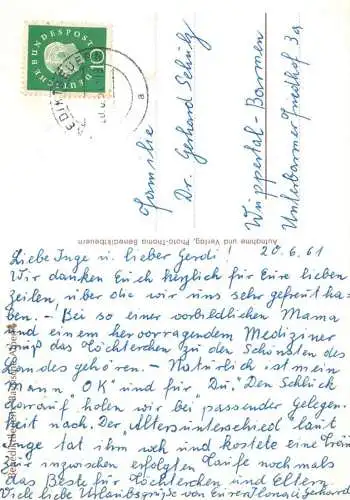 DEUTSCHE BUNDESPOST
10
a
Familie
Dr. Gerhard Schulz
Wuppertal-Barmen
Unterbarmer Friedhof 3a
Aufnahme und Verlag, Photo-Thoma Benediktbeuern
Liebe Inge u. lieber Gerdi! 20.6.61
Wir danken Euch herzlich für Eure lieben
Zeilen, über die wir uns sehr gefreut ha-
ben. – Bei so einer vorbildlichen Mama
und einem hervorragendem Mediziner
muß das Töchterchen zu den Schönsten des
Landes gehören. – Natürlich ist mein
Mann "OK" und für "Du." Den Schluck
darauf holen wir bei passender Gelegen-
heit nach. Der "Altersunterschied" laut
Inge tat ihm weh und kostete eine
Zur inzwischen erfolgten Taufe noch mals
das Beste für Töchterchen und Eltern.
Viele liebe Urlaubsgrüße von Eurer u. Gerhard